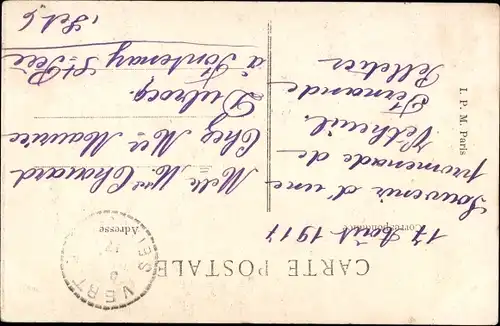 CARTE POSTALE
Correspondance
Adresse
17 Août 1917
Souvenir d'une
promenade de
Vétheuil.
Fernande
Pelletier
Melle M. Chavard
Chez Mr Maurice
Dubrocq.
à Fontenay St Père
I. P. M. Paris
VERT